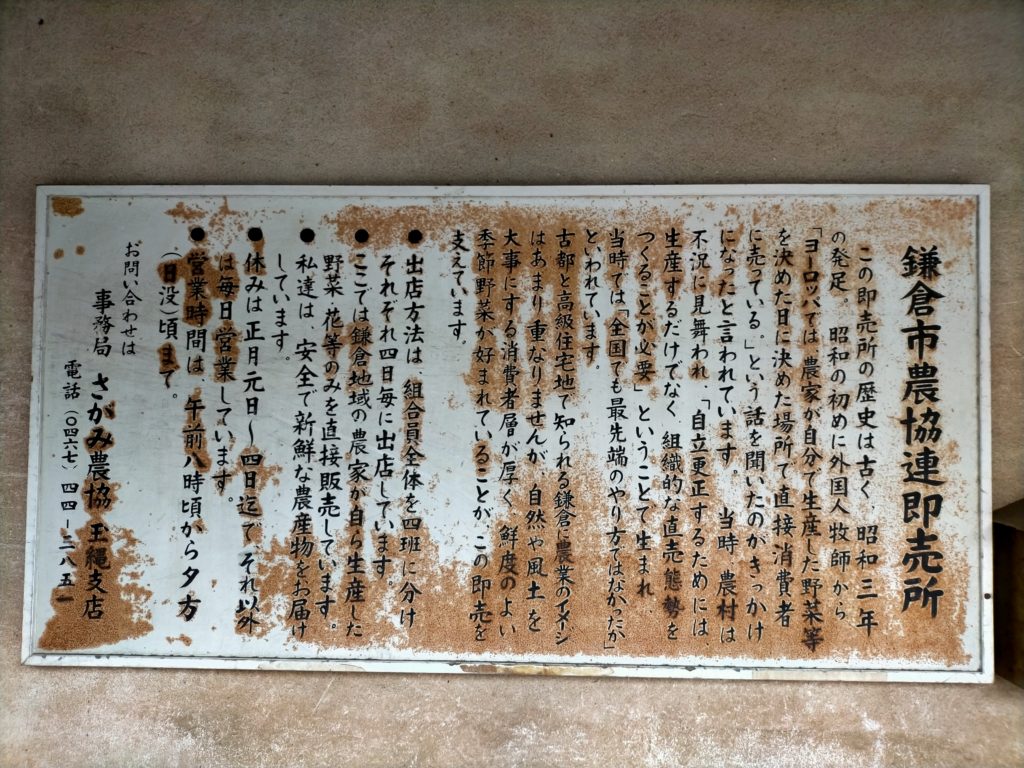 鎌倉市農協連即売所
この即売所の歴史は古く、昭和三年
の発足。昭和の初めに外国人牧師から
「ヨーロッパでは、農家が自分で生産した野菜等
を決めた日に決めた場所で直接消費者
に売っている。」という話を聞いたのがきっかけ
になったと言われています。当時、農村は
不況に見舞われ、「自立更正するためには、
生産するだけでなく、組織的な直売態勢を
つくることが必要」ということで生まれ、
当時では「全国でも最先端のやり方ではなかったか」
といわれています。
古都と高級住宅地で知られる鎌倉に農業のイメージ
はあまり重なりませんが、自然や風土を
大事にする消費者層が厚く、鮮度のよい
季節野菜が好まれていることが、この即売を
支えています。
●出店方法は、組合員全体を四班に分け
それぞれ四日毎に出店しています。
●ここでは鎌倉地域の農家が自ら生産した
野菜・花等のみを直接販売しています。
●私達は、安全で新鮮な農産物をお届け
しています。
●休みは正月元日〜四日迄で、それ以外
は毎日営業しています。
●営業時間は、午前八時頃から夕方
(日没)頃まで。
お問い合わせは
事務局 さがみ農協 玉縄支店
電話(〇四六七)四四-三八五一